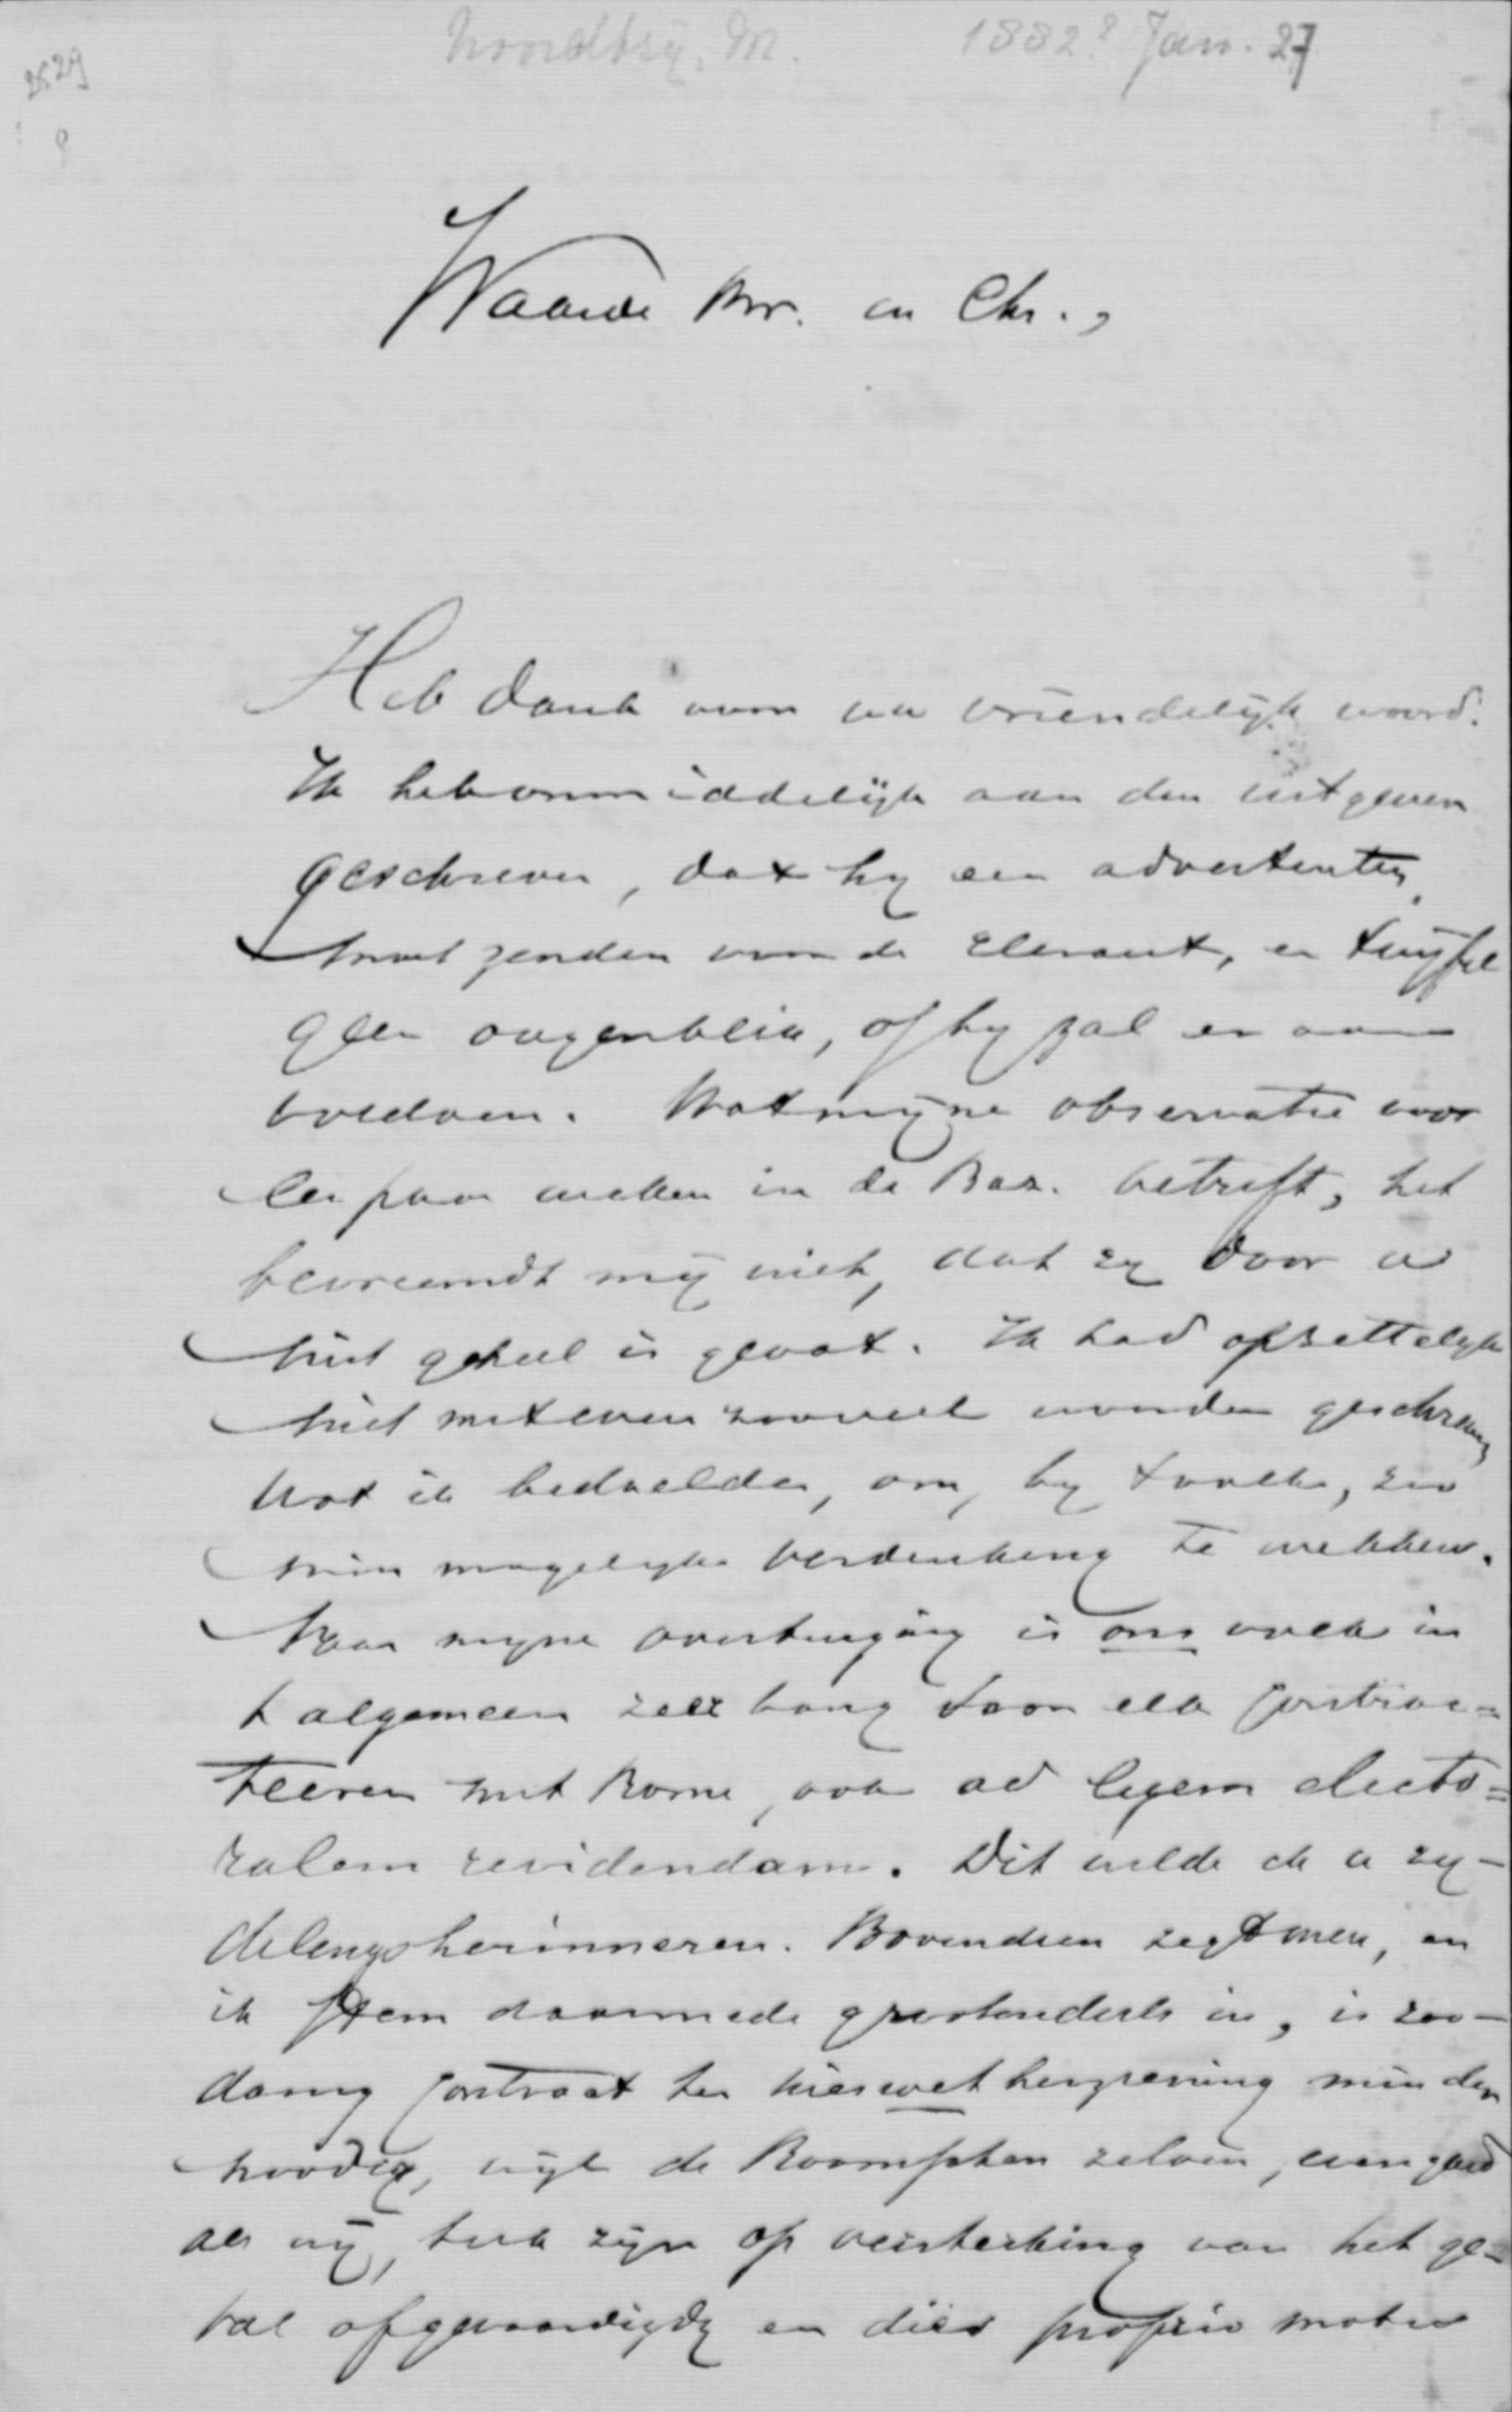 Noordtzij, M. 1882? Jan. 27
2529
Waarde Br. in Chr.,
Heb dank voor uw vriendelijk woord.
Ik heb onmiddelijk aan den uitgever
geschreven, dat hy een advertentie
moet zenden voor de Heraut, en twijfel
geen oogenblik, of hy zal er aan
voldoen. Wat mijne observatie voor
een paar weken in de Baz. betreft, het
bevreemdt mij niet, dat zy door u
niet geheel is gevat. Ik had opzettelijk
niet met even zooveel woorden geschreven
wat ik bedoelde, om, by 't volk, zoo
min mogelyke verdenking te wekken.
Naar myne overtuiging is ons volk in
't algemeen zeer bang voor elk contrac=
teeren met Rome, ook ad legem electo=
ralem revidendam. Dit wilde ik u zij-
delings herinneren. Bovendien zegt men, en
ik stem daarmede grootendeels in, is zoo-
danig contract ter kieswetherziening minder
noodig, wijl de Roomschen zelven, evengoed
als wij, tuk zijn op versterking van het ge=
tal afgevaardigden en dies proprio motu